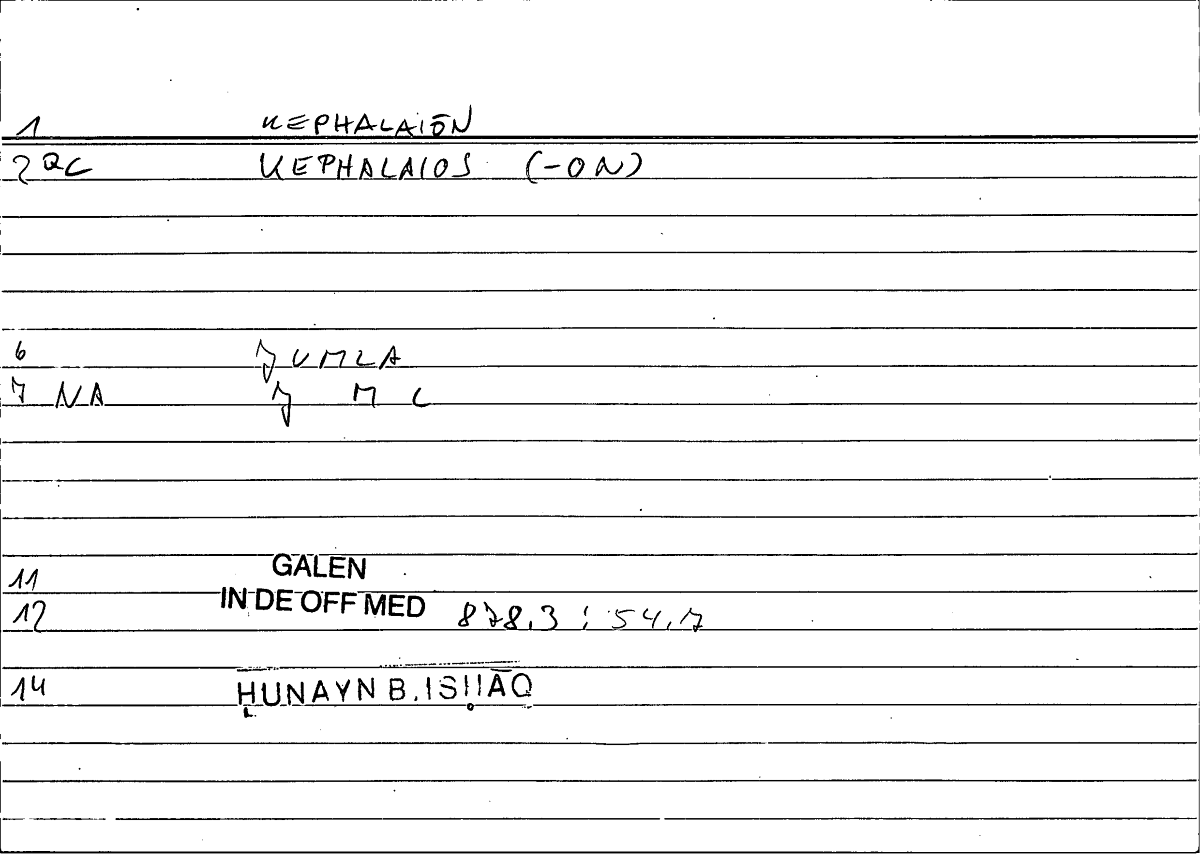 1 KEPHALAIŌN
2 QC KEPHALAIOS (-ON)
6 JUMLA
7 NA J M L
11 GALEN
12 IN DE OFF MED 878.3 : 54.7
14 ḤUNAYN B. ISḤĀQ